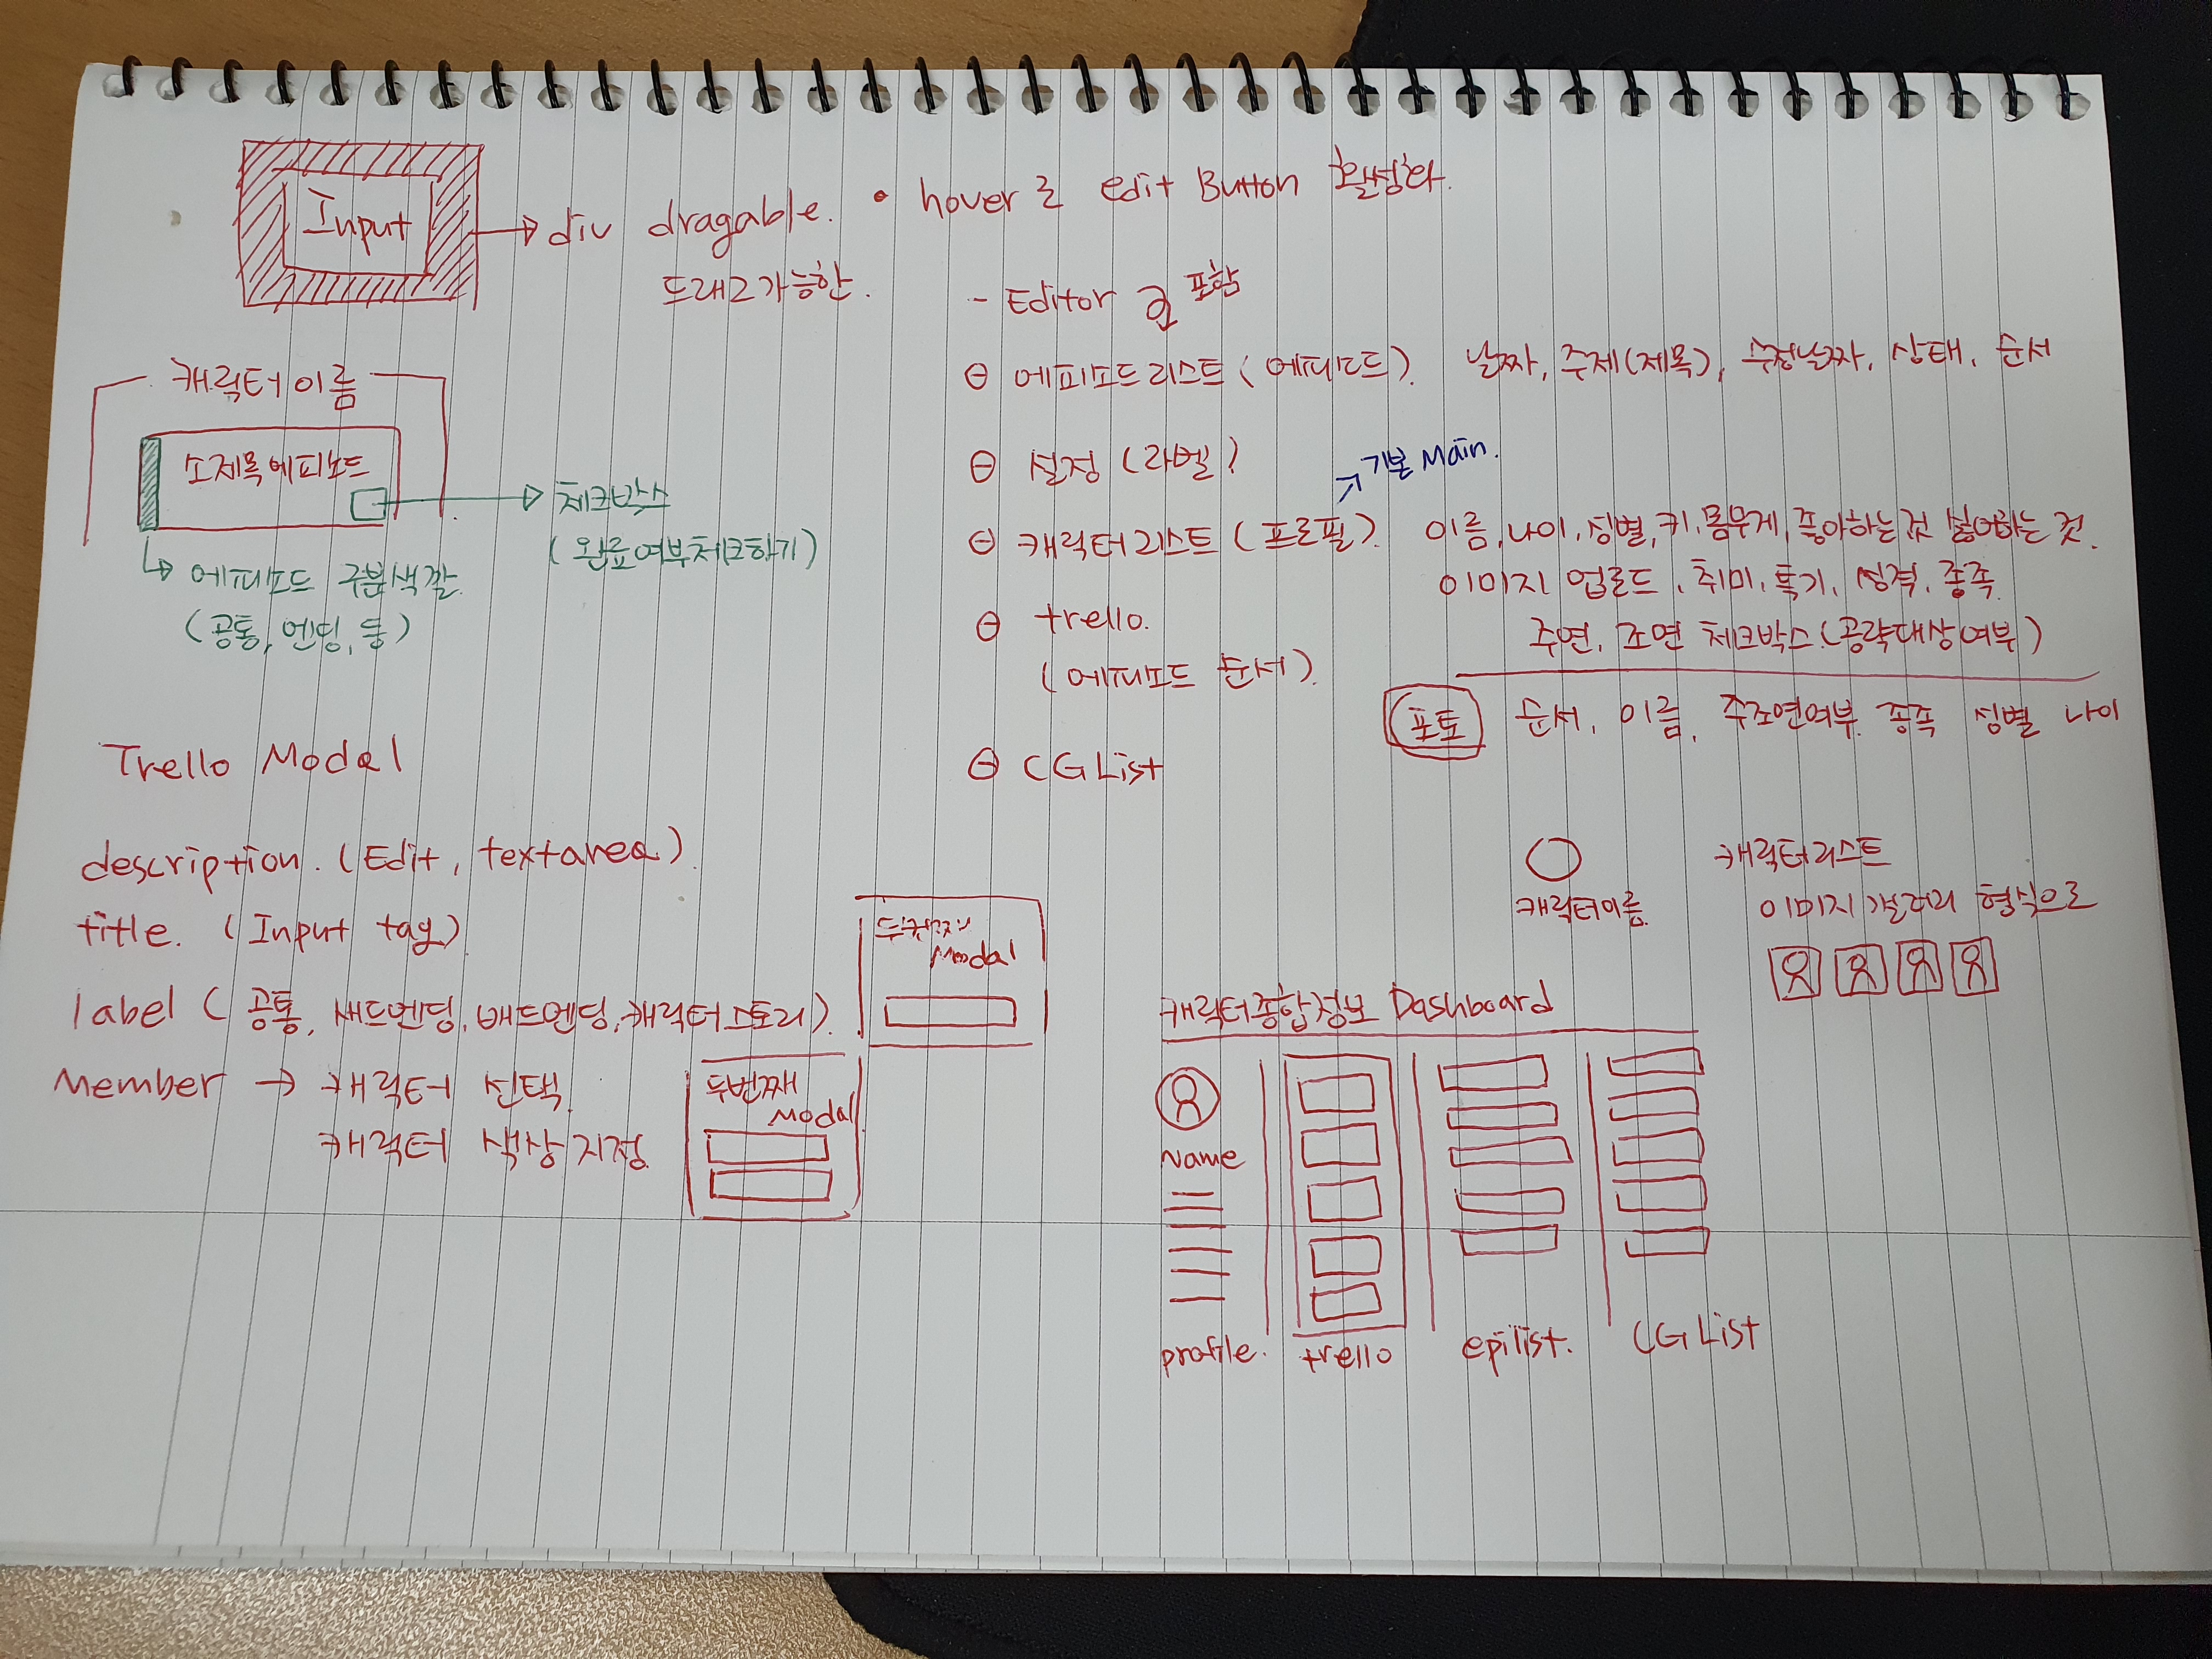 Input
div dragable.
드래그가능한.
• hover로 edit Button 활성화.
- Editor를 포함
⊖ 에피소드리스트 (에피소드). 날짜, 주제(제목), 수정날짜, 상태, 순서
⊖ 설정 (라벨)
기본 Main.
⊖ 캐릭터리스트 (프로필). 이름, 나이, 성별, 키, 몸무게, 좋아하는것 싫어하는 것.
이미지 업로드, 취미, 특기, 성격, 종족
주연, 조연 체크박스.(공략대상여부)
⊖ trello.
(에피소드 순서).
포토 순서, 이름, 주조연여부. 종족 성별 나이
⊖ CG List
캐릭터이름
소제목에피소드
체크박스
(완료여부체크하기)
에피소드 구분색깔
(공통, 엔딩, 등)
Trello Modal
description. (Edit, textarea)
title. (Input tag)
label (공통, 새드엔딩, 배드엔딩, 캐릭터스토리).
Member → 캐릭터 선택
캐릭터 색상지정
두번째
Modal
두번째
Modal
캐릭터이름
캐릭터리스트
이미지갤러리 형식으로
캐릭터종합정보 Dashboard
Name
profile. trello epilist. CG List